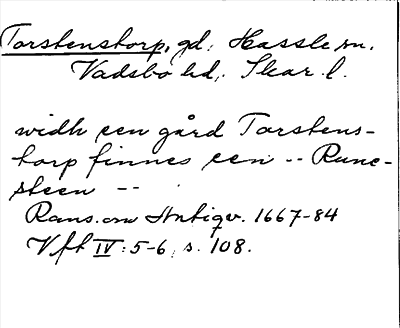 Torstenstorp, gd, Hassle sn.
Vadsbo hd, Skar. l.
widh een gård Torstens-
torp finnes een -- Rune-
steen --
Rans. om Antiqv. 1667-84
Vft IV: 5-6, s. 108.